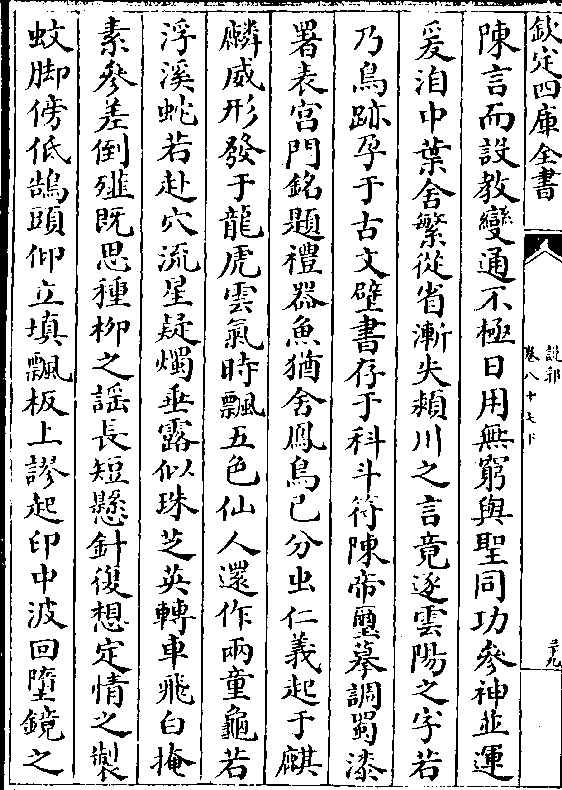 欽定四庫全書
說郛
卷八十七下
三十九
陳言而設教變通不極日用無窮與聖同功參神並運
爰洎中葉舍繁從省漸失潁川之言竟逐雲陽之字若
乃鳥跡孕于古文壁書存于科斗符陳帝璽摹調蜀漆
署表宮門銘題禮器魚猶舍鳳鳥已分虫仁義起于麒
麟威形發于龍虎雲氣時飄五色仙人還作兩童龜若
浮溪蛇若赴穴流星疑燭垂露似珠芝英轉車飛白掩
素參差倒薤既思種柳之謡長短懸針復想定情之製
蚊脚傍低鵠頭仰立填飄板上謬起印中波回墮鏡之